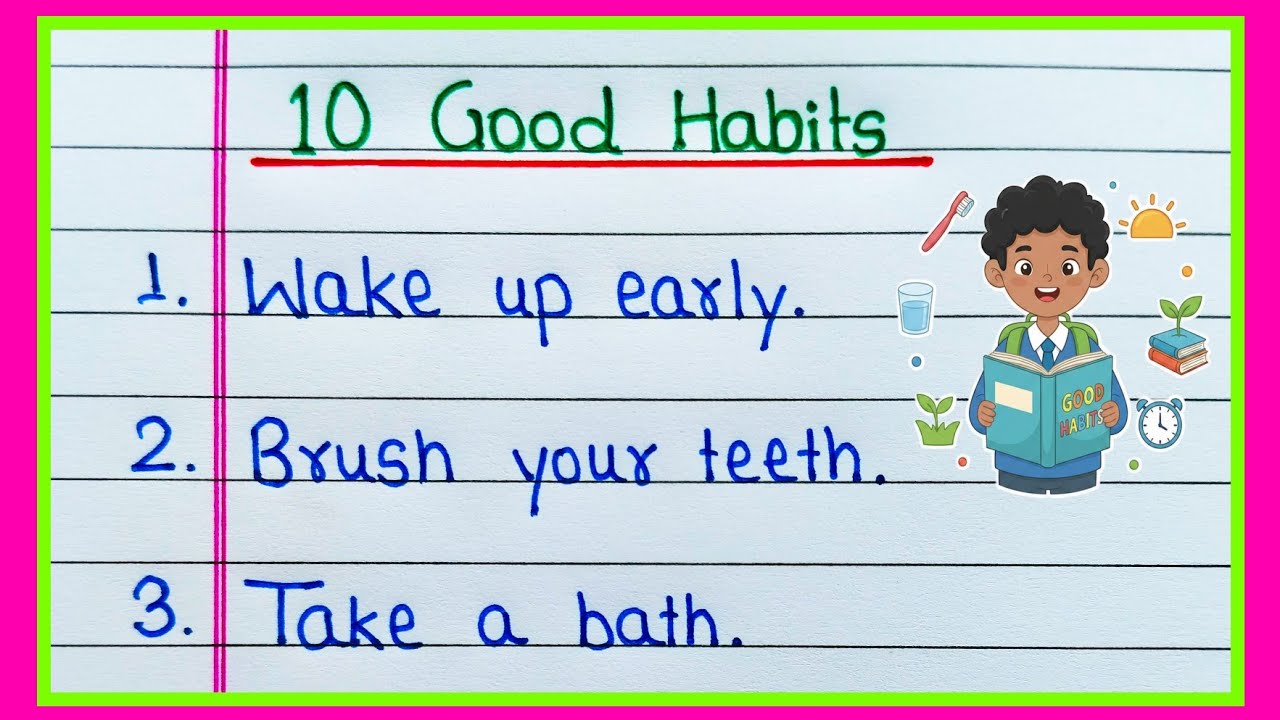 10 Good Habits
1. Wake up early.
2. Brush your teeth.
3. Take a bath.
GOOD
HABITS